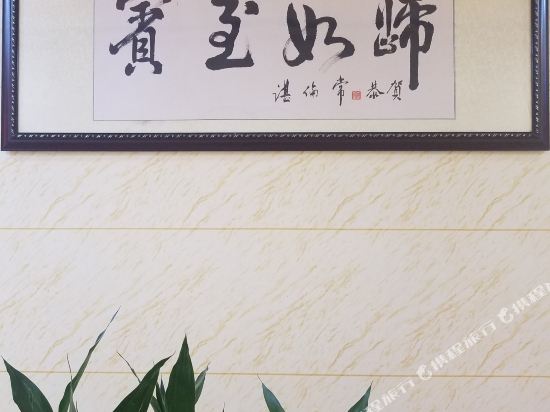 賓至如歸
湛倫常恭賀
携程旅行
携程旅行